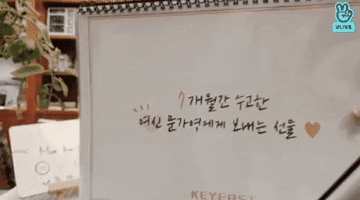 VLIVE
7개월간 수고한
여신 문가영에게 보내는 선물
KEYEAST